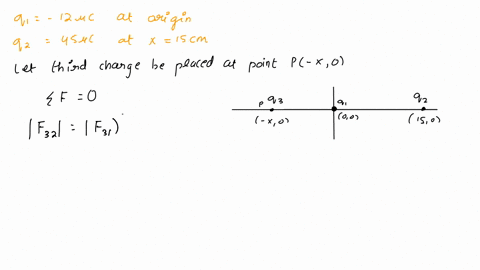 q1 = - 12 μC at origin
q2 = 45 μC at x = 15 cm
Let third charge be placed at point P(-x,0)
Σ F = 0
|F32| = |F31)
P q3 q1 q2
(-x,0) (0,0) (15,0)